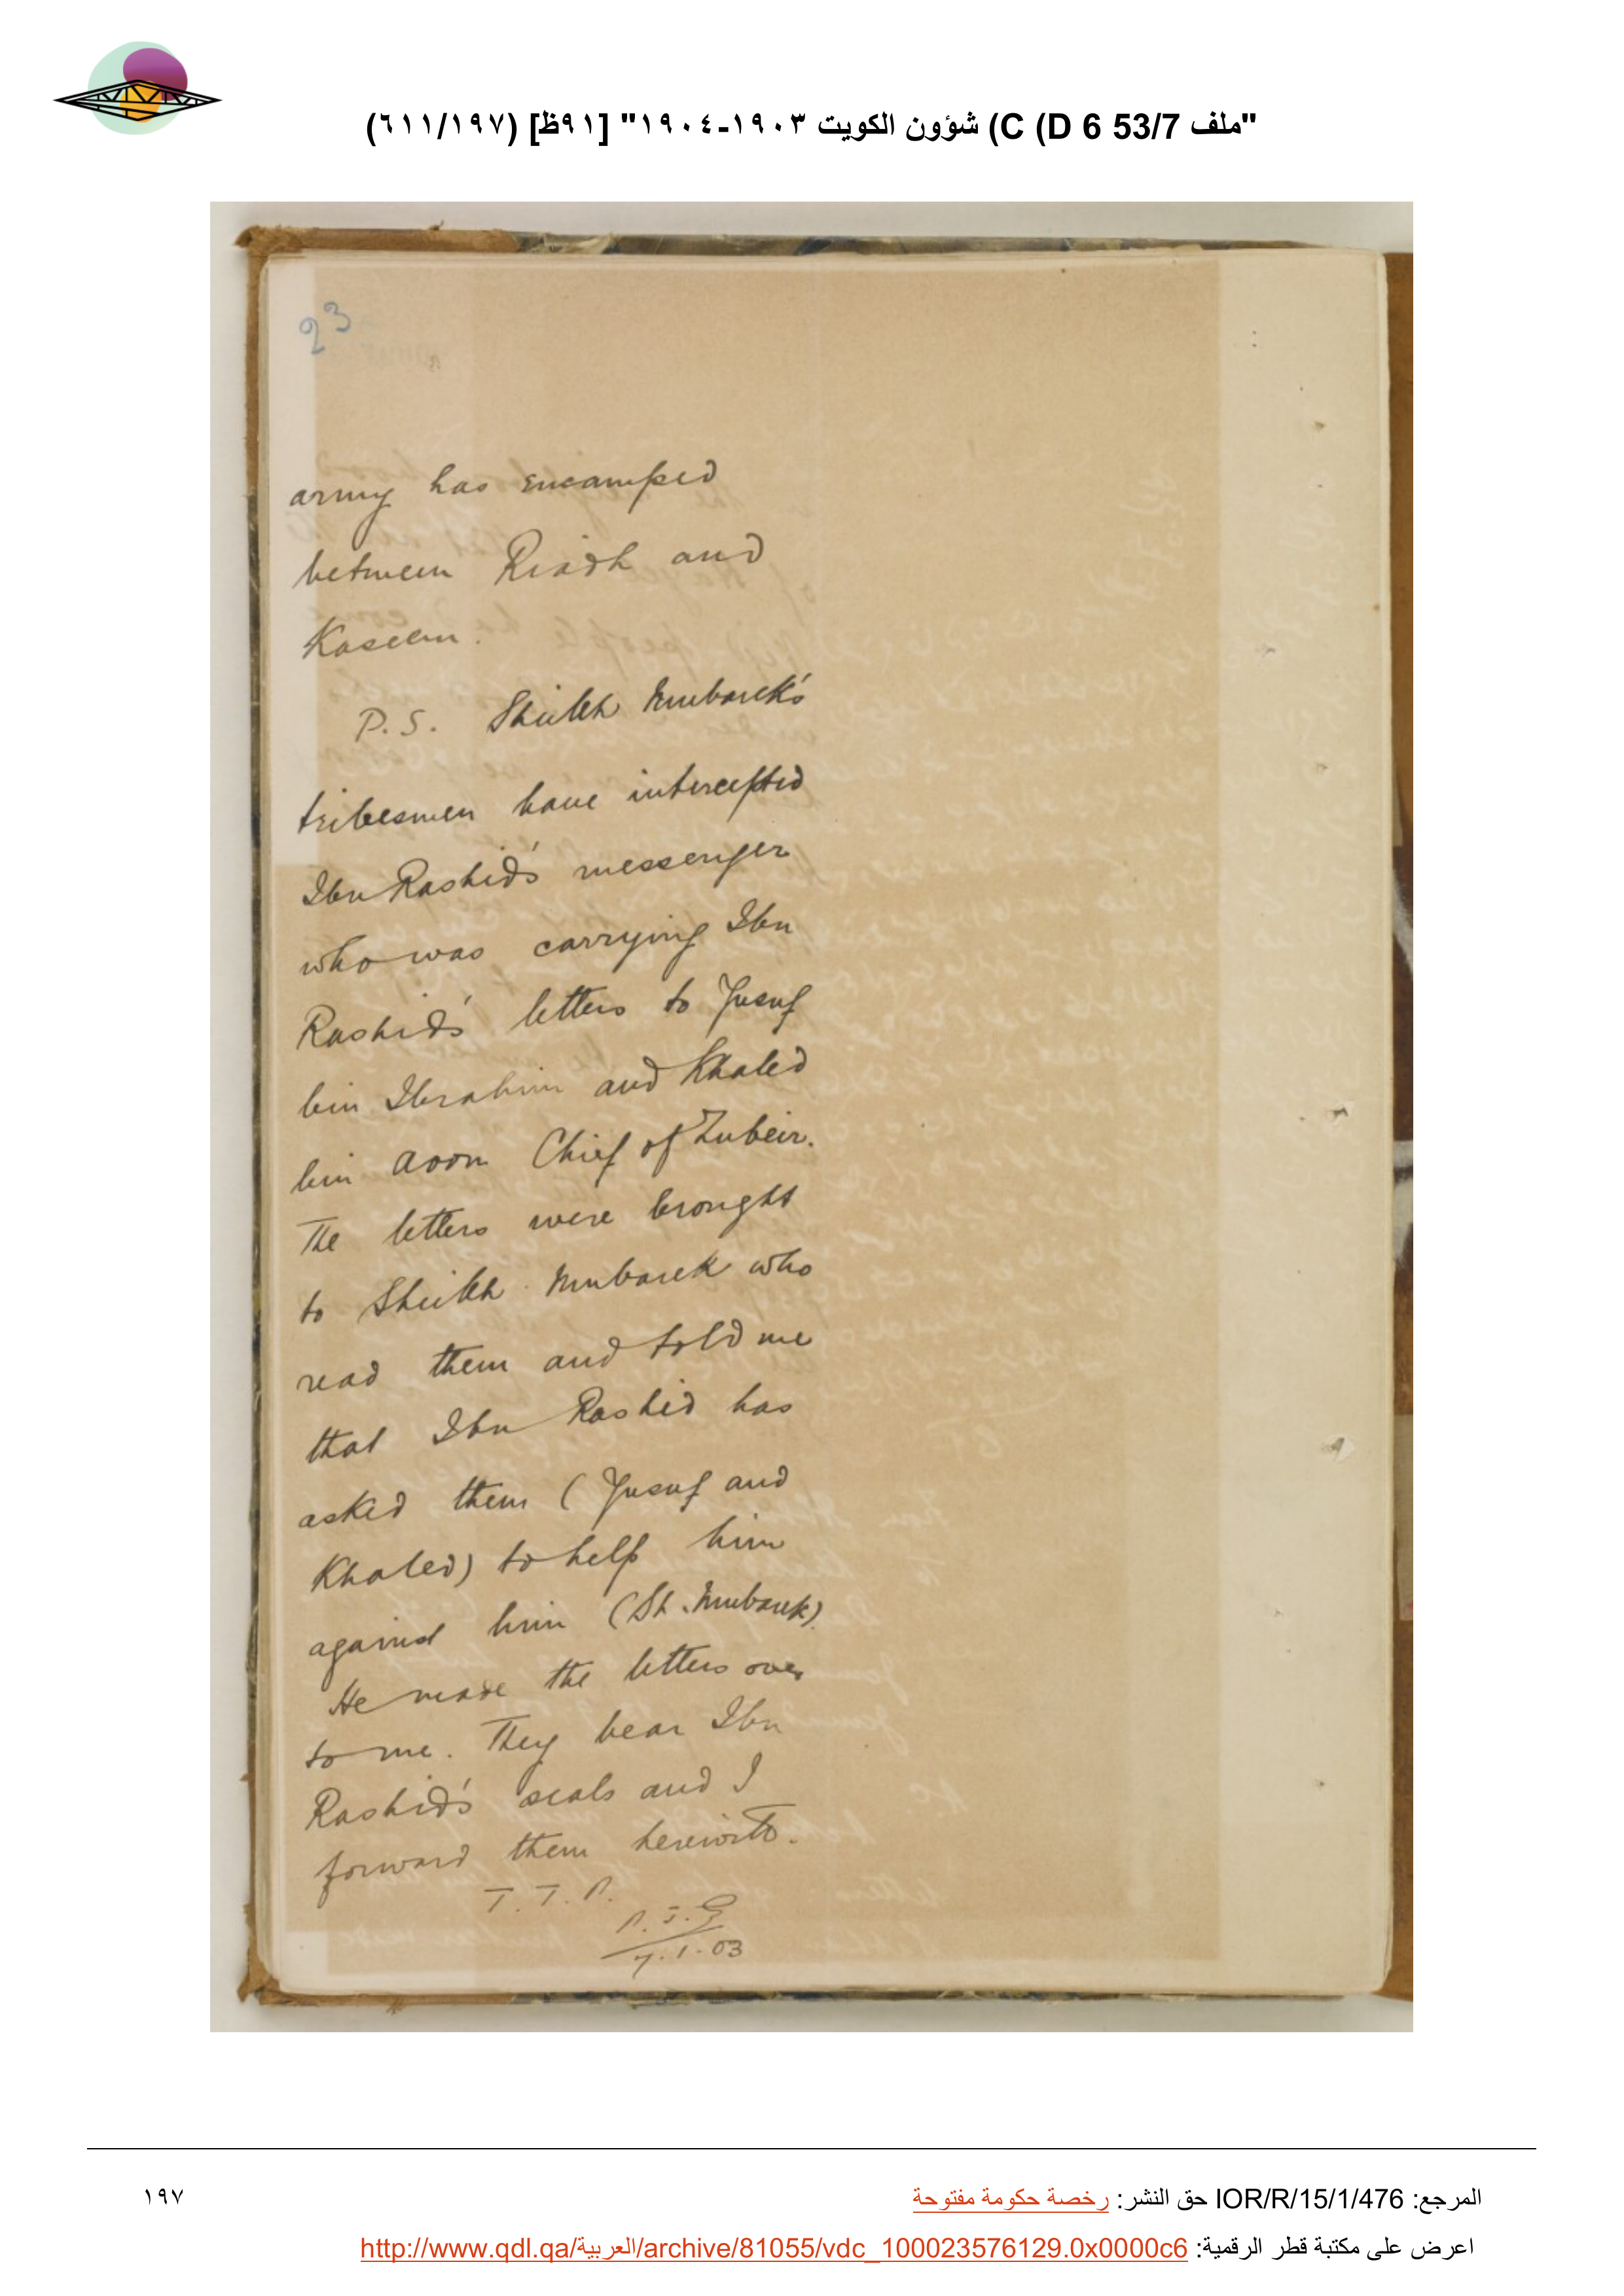 "ملف 53/7 C (D 6) شؤون الكويت ١٩٠٣-١٩٠٤" [٩١ظ] (٦١١/١٩٧)
23
army has encamped
between Riadh and
Kaseem.
P.S. Sheikh Mubarek's
tribesmen have intercepted
Ibn Rashid's messenger
who was carrying Ibn
Rashid's letters to Yusuf
bin Ibrahim and Khaled
bin Aoon Chief of Zubeir.
The letters were brought
to Sheikh Mubarek who
read them and told me
that Ibn Rashid has
asked them (Yusuf and
Khaled) to help him
against him (Sh. Mubarek).
He made the letters over
to me. They bear Ibn
Rashid's seals and I
forward them herewith.
T. T. P.
P. J. G
7.1.03
المرجع: IOR/R/15/1/476 حق النشر: رخصة حكومة مفتوحة
١٩٧
اعرض على مكتبة قطر الرقمية: http://www.qdl.qa/العربية/archive/81055/vdc_100023576129.0x0000c6